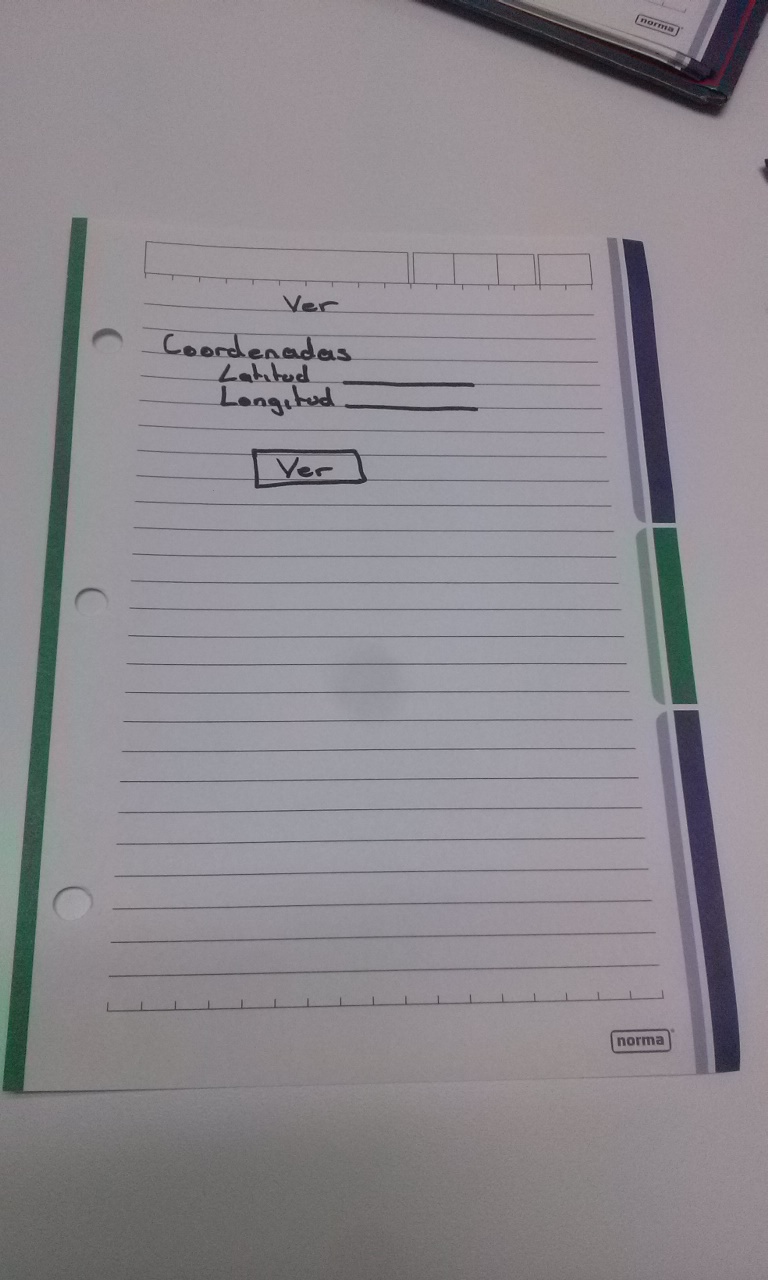 norma
Ver
Coordenadas
Latitud
Longitud
Ver
norma